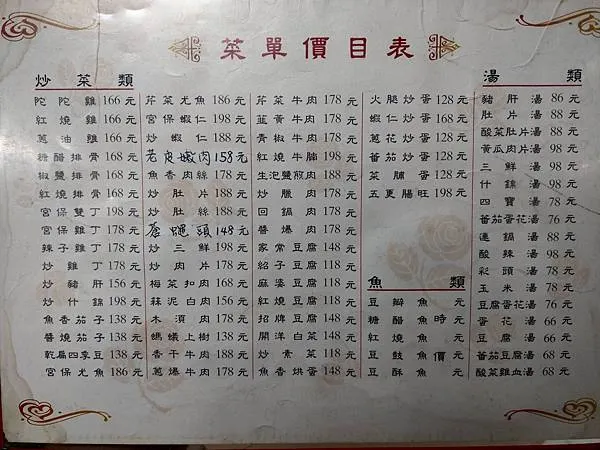 菜單價目表
炒菜類
陀陀雞 166元
紅燒雞 166元
蔥油雞 166元
糖醋排骨 168元
椒鹽排骨 168元
紅燒排骨 168元
宮保雙丁 198元
宮保雞丁 178元
辣子雞丁 178元
炒雞丁 178元
炒豬肝 156元
炒什錦 198元
魚香茄子 138元
醬燒茄子 138元
乾扁四季豆 138元
宮保魷魚 186元
芹菜尤魚 186元
宮保蝦仁 198元
炒蝦仁 198元
魚香肉絲 178元
炒肚片 188元
炒肚絲 188元
蒼蠅頭 148元
炒三鮮 198元
炒肉片 178元
梅菜扣肉 168元
蒜泥白肉 156元
木須肉 178元
螞蟻上樹 138元
香干牛肉 188元
蔥爆牛肉 178元
芹菜牛肉 178元
韮黃牛肉 178元
青椒牛肉 178元
紅燒牛腩 198元
生泡鹽煎肉 188元
炒臘肉 178元
回鍋肉 178元
醬爆肉 178元
家常豆腐 148元
紹子豆腐 118元
麻婆豆腐 118元
紅燒豆腐 118元
招牌豆腐 148元
開洋白菜 148元
炒素菜 118元
魚香烘蛋 148元
火腿炒蛋 128元
蝦仁炒蛋 168元
蔥花炒蛋 128元
番茄炒蛋 128元
菜脯蛋 128元
五更腸旺 198元
魚類
豆瓣魚 元
糖醋魚 時 元
紅燒魚 元
豆鼓魚 價 元
豆酥魚 元
湯類
豬肝湯 86元
肚片湯 88元
酸菜肚片湯 88元
黃瓜肉片湯 98元
三鮮湯 98元
什錦湯 98元
四寶湯 78元
番茄蛋花湯 76元
連鍋湯 88元
酸辣湯 98元
彩頭湯 78元
玉米湯 78元
豆腐蛋花湯 76元
蛋花湯 66元
豆腐湯 66元
番茄豆腐湯 68元
酸菜雞血湯 68元